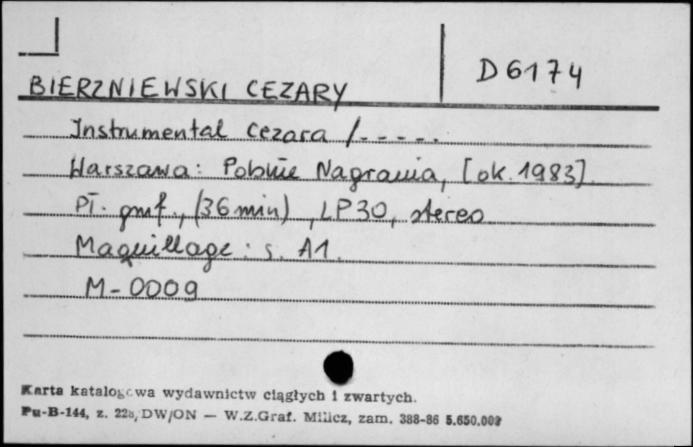 D 6174
BIERZNIEWSKI CEZARY
Instrumental Cezara /- - - - -.
Warszawa: Polskie Nagrania, [ok. 1983].
Pł. gmf., (36 min), LP30, stereo
Maquillage: s. A1.
M-0009
Karta katalogowa wydawnictw ciągłych i zwartych.
Pu-B-144, z. 228, DW/ON — W.Z.Graf. Milicz, zam. 388-86 5.650.000